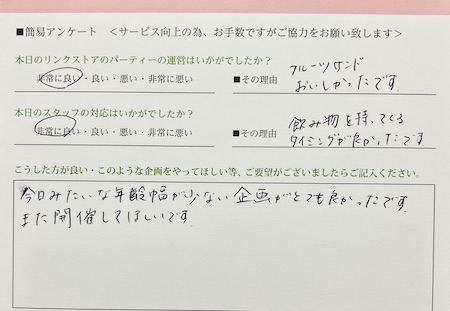 ■簡易アンケート　＜サービス向上の為、お手数ですがご協力をお願い致します＞
本日のリンクストアのパーティーの運営はいかがでしたか？
非常に良い・良い・悪い・非常に悪い
■その理由
フルーツサンド
おいしかったです。
本日のスタッフの対応はいかがでしたか？
非常に良い・良い・悪い・非常に悪い
■その理由
飲み物を持ってくる
タイミングが良かったです。
こうした方が良い・このような企画をやってほしい等、ご要望がございましたらご記入ください。
今日みたいな年齢幅が少ない企画がとても良かったです。
また開催してほしいです。